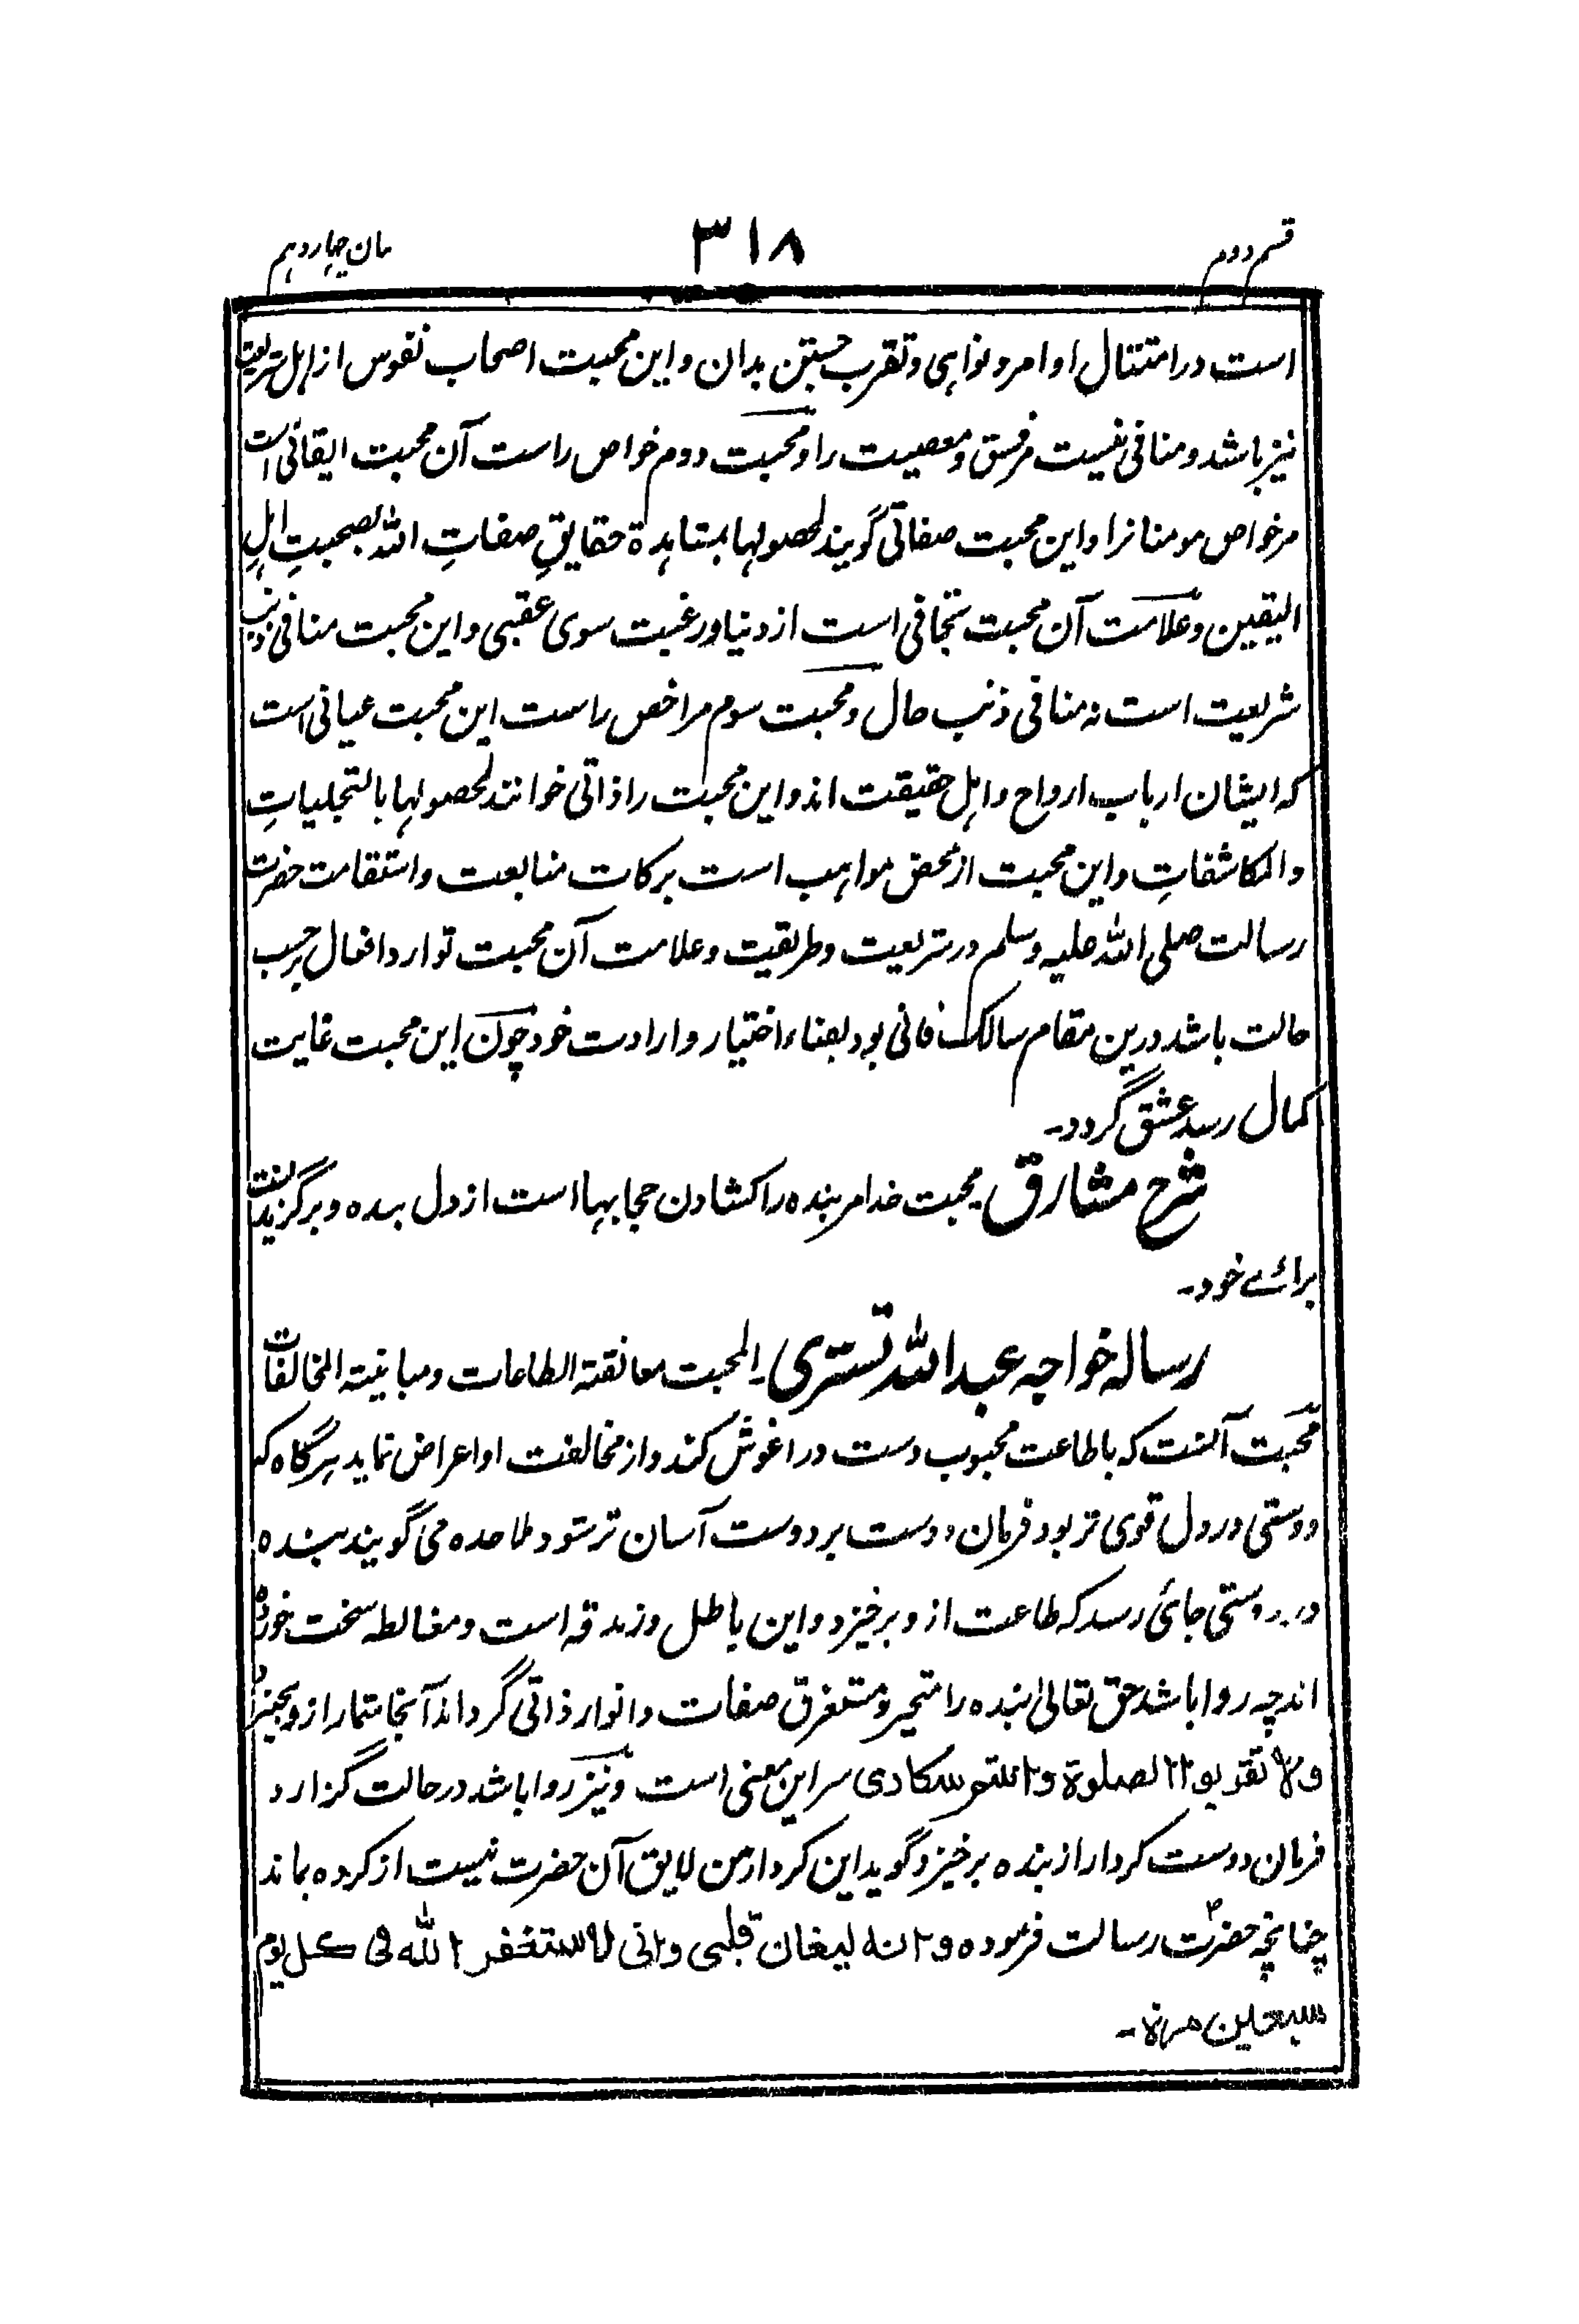 قسم دوم
۳۱۸
مان چهاردهم
است در امتثال اوامر و نواہی و تقرب جستن بدان و این محبت اصحاب نفوس از اہل شریعت
نیز باشد و منافی نیست مر فسق و معصیت را و محبت دوم خواص راست آن محبت ایقانی است
مر خواص مومنانرا و این محبت صفاتی گویند لحصولہا بمشاہدة حقایقِ صفاتِ اللہ بصحبتِ اہلِ
الیقین و علامت آن محبت تجافی است از دنیا و رغبت سوی عقبی و این محبت منافی ذنب
شریعت است نہ منافی ذنب حال و محبت سوم مر اخص راست این محبت عیانی است
کہ ایشان ارباب ارواح و اہل حقیقت اند و این محبت را ذاتی خوانند لحصولہا بالتجلیاتِ
والمکاشفاتِ و این محبت از محض مواہب است برکات متابعت و استقامت حضرت
رسالت صلی اللہ علیہ وسلم در شریعت و طریقیت و علامت آن محبت توارد افعال برحسب
حالت باشد درین مقام سالک فانی بود بفناء اختیار و ارادت خود چون این محبت غایت
کمال رسد عشق گردد۔
شرح مشارق۔ محبت خدا مر بندہ را کشادن حجابہا است از دل بندہ و برگزیدن است
برائے خود۔
رسالہ خواجہ عبداللہ تستری۔ المحبت معانقتہ الطاعات ومباینتہ المخالفات
محبت آنست کہ با طاعت محبوب دست در اغوش کند و از مخالفت او اعراض نماید ہرگاہ کہ
دوستی در دل قوی تر بود فرمان دوست بر دوست آسان تر شود ملاحدہ می گویند بندہ
در دوستی جائ رسد کہ طاعت از و برخیزد و این باطل و زندقہ است و مغالطہ سخت خوردہ
اند چہ روا باشد حق تعالیٰ بندہ را متحیر و مستغرق صفات و انوار ذاتی گرداند آنجا شمار از و بخیزد
ولا تقربوا الصلوة وانتم سکاری سر این معنی است و نیز روا باشد در حالت گزارد
فرمان دوست کردار از بندہ برخیزد گوید این کردار من لایق آن حضرت نیست از کردہ بماند
چنانچہ حضرت رسالت فرمودہ وانه لیغان قلبی وانی لاستغفر الله فی کل یوم
سبعین مرة۔